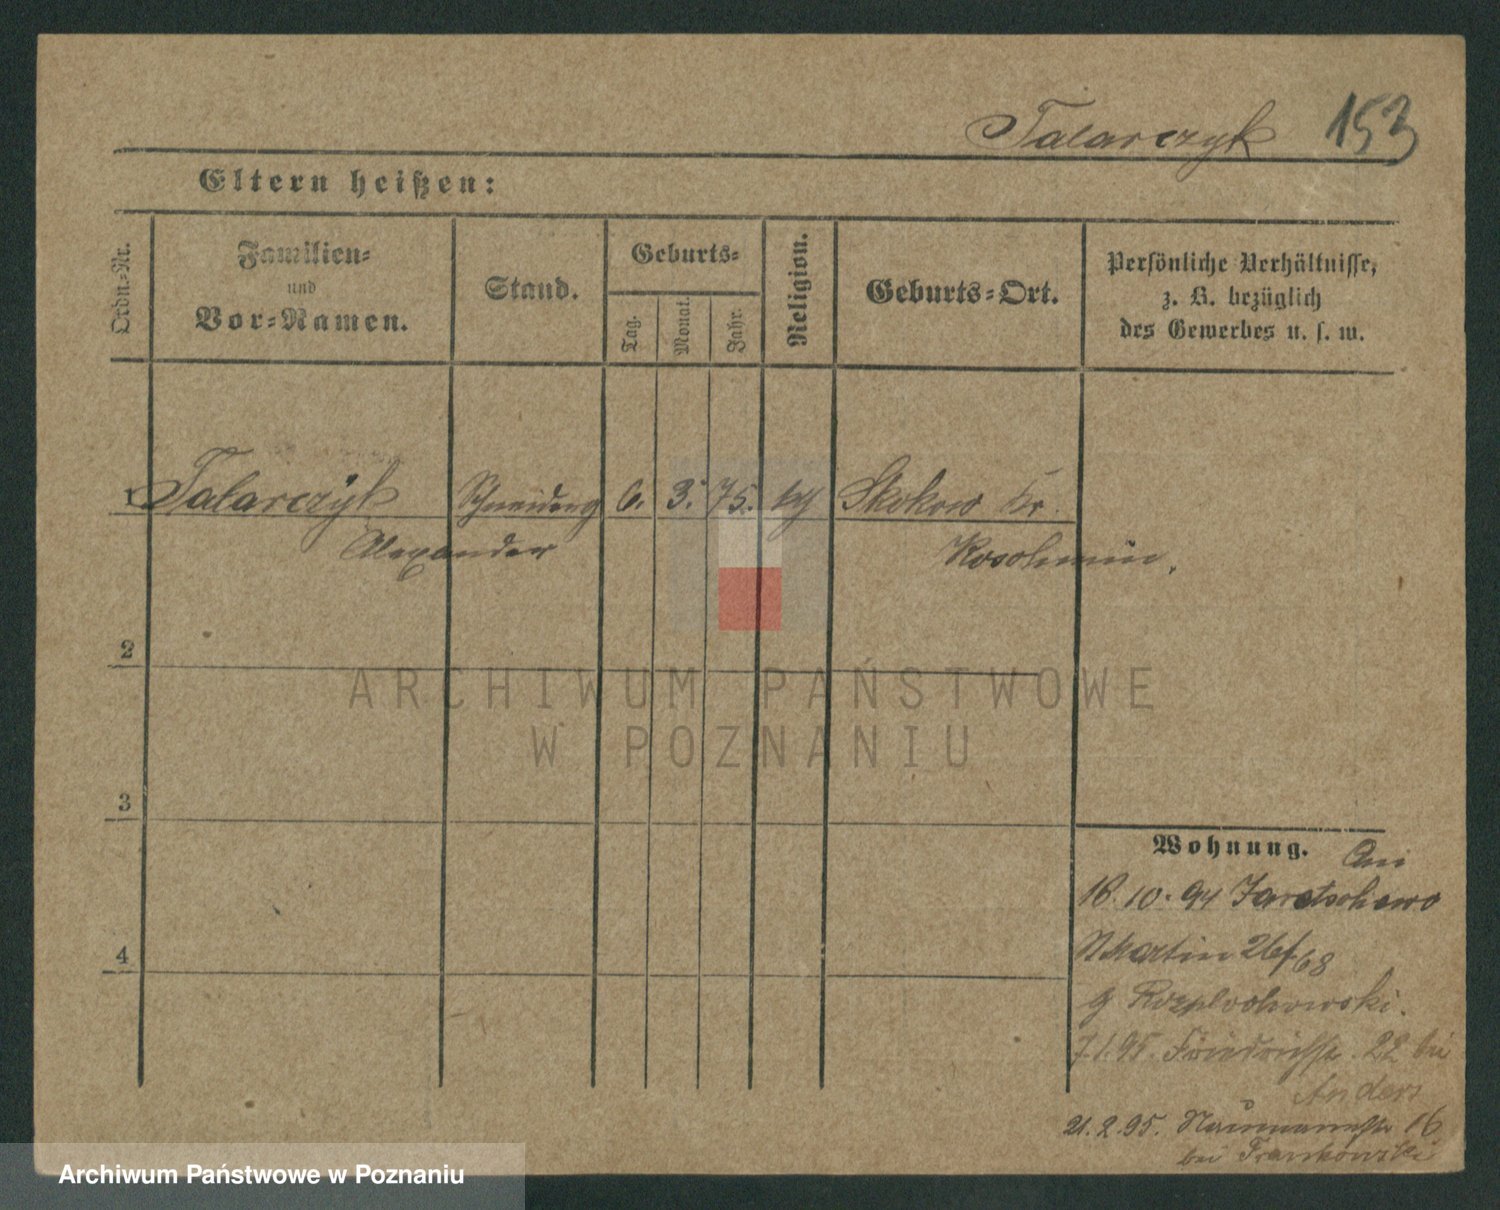 Talarczyk 153
Eltern heißen:
Ordn.-Nr.
Familien-
und
Vor-Namen.
Stand.
Geburts-
Tag.
Monat.
Jahr.
Religion.
Geburts-Ort.
Persönliche Verhältnisse,
z. B. bezüglich
des Gewerbes u. s. w.
1 Talarczyk Schneiderg 6. 3. 75. kg Skokow Kr.
Alexander Koschmin,
2
3
4
ARCHIWUM PAŃSTWOWE
W POZNANIU
Wohnung.
16.10.94 Jaretschewo
St Martin 26/68
7.1.95. Friedrichstr. 22 bei
Anders
21.2.95. Naumannstr 16
bei Frankowski
Archiwum Państwowe w Poznaniu